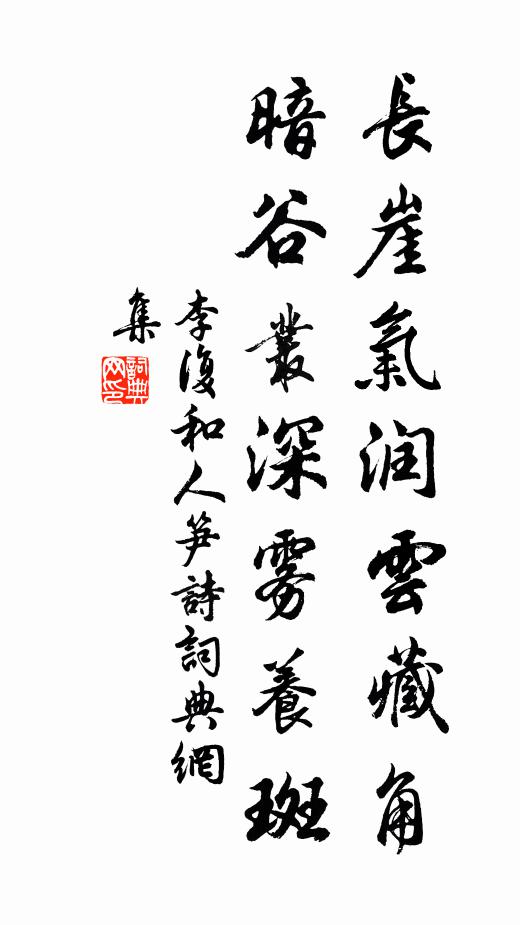 長崖氣润雲藏角
暗谷叢深雾養斑
李復和人笋詩詞典網
集
詞典
网印